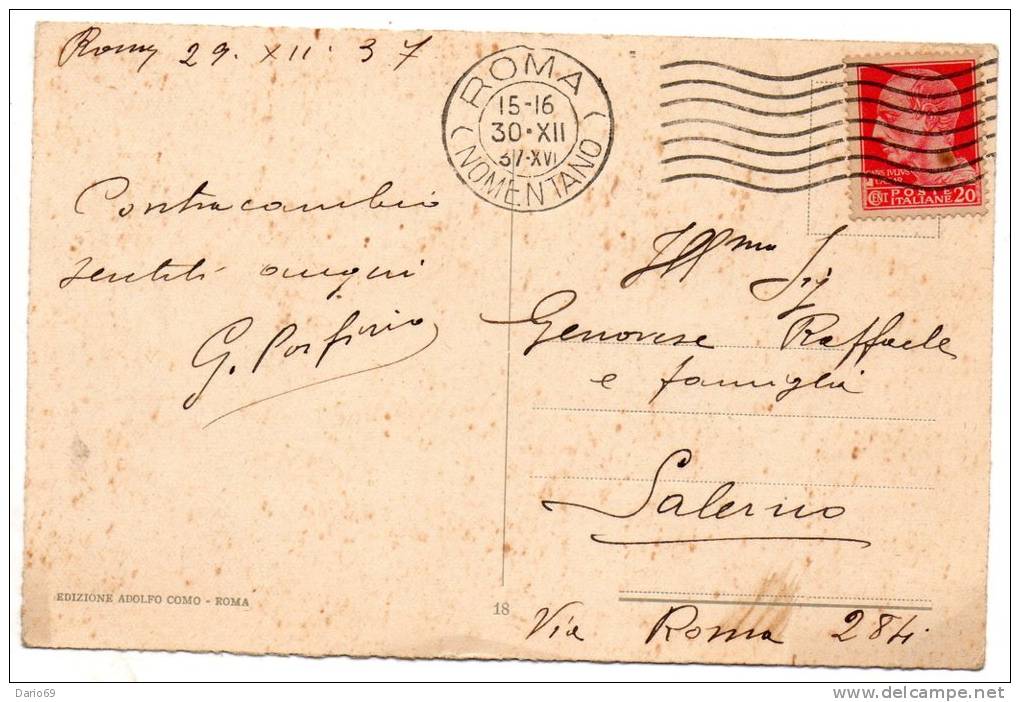 Roma 29. XII. 37
ROMA
15-16
30·XII
37-XVI
(NOMENTANO)
CENT POSTE
ITALIANE 20
Contracambio
sentiti auguri
G. Porfirio
Ill.mo Sig
Genovese Raffaele
e famiglia
Salerno
Via Roma 284
EDIZIONE ADOLFO COMO - ROMA
18
Dario69
www.delcampe.net